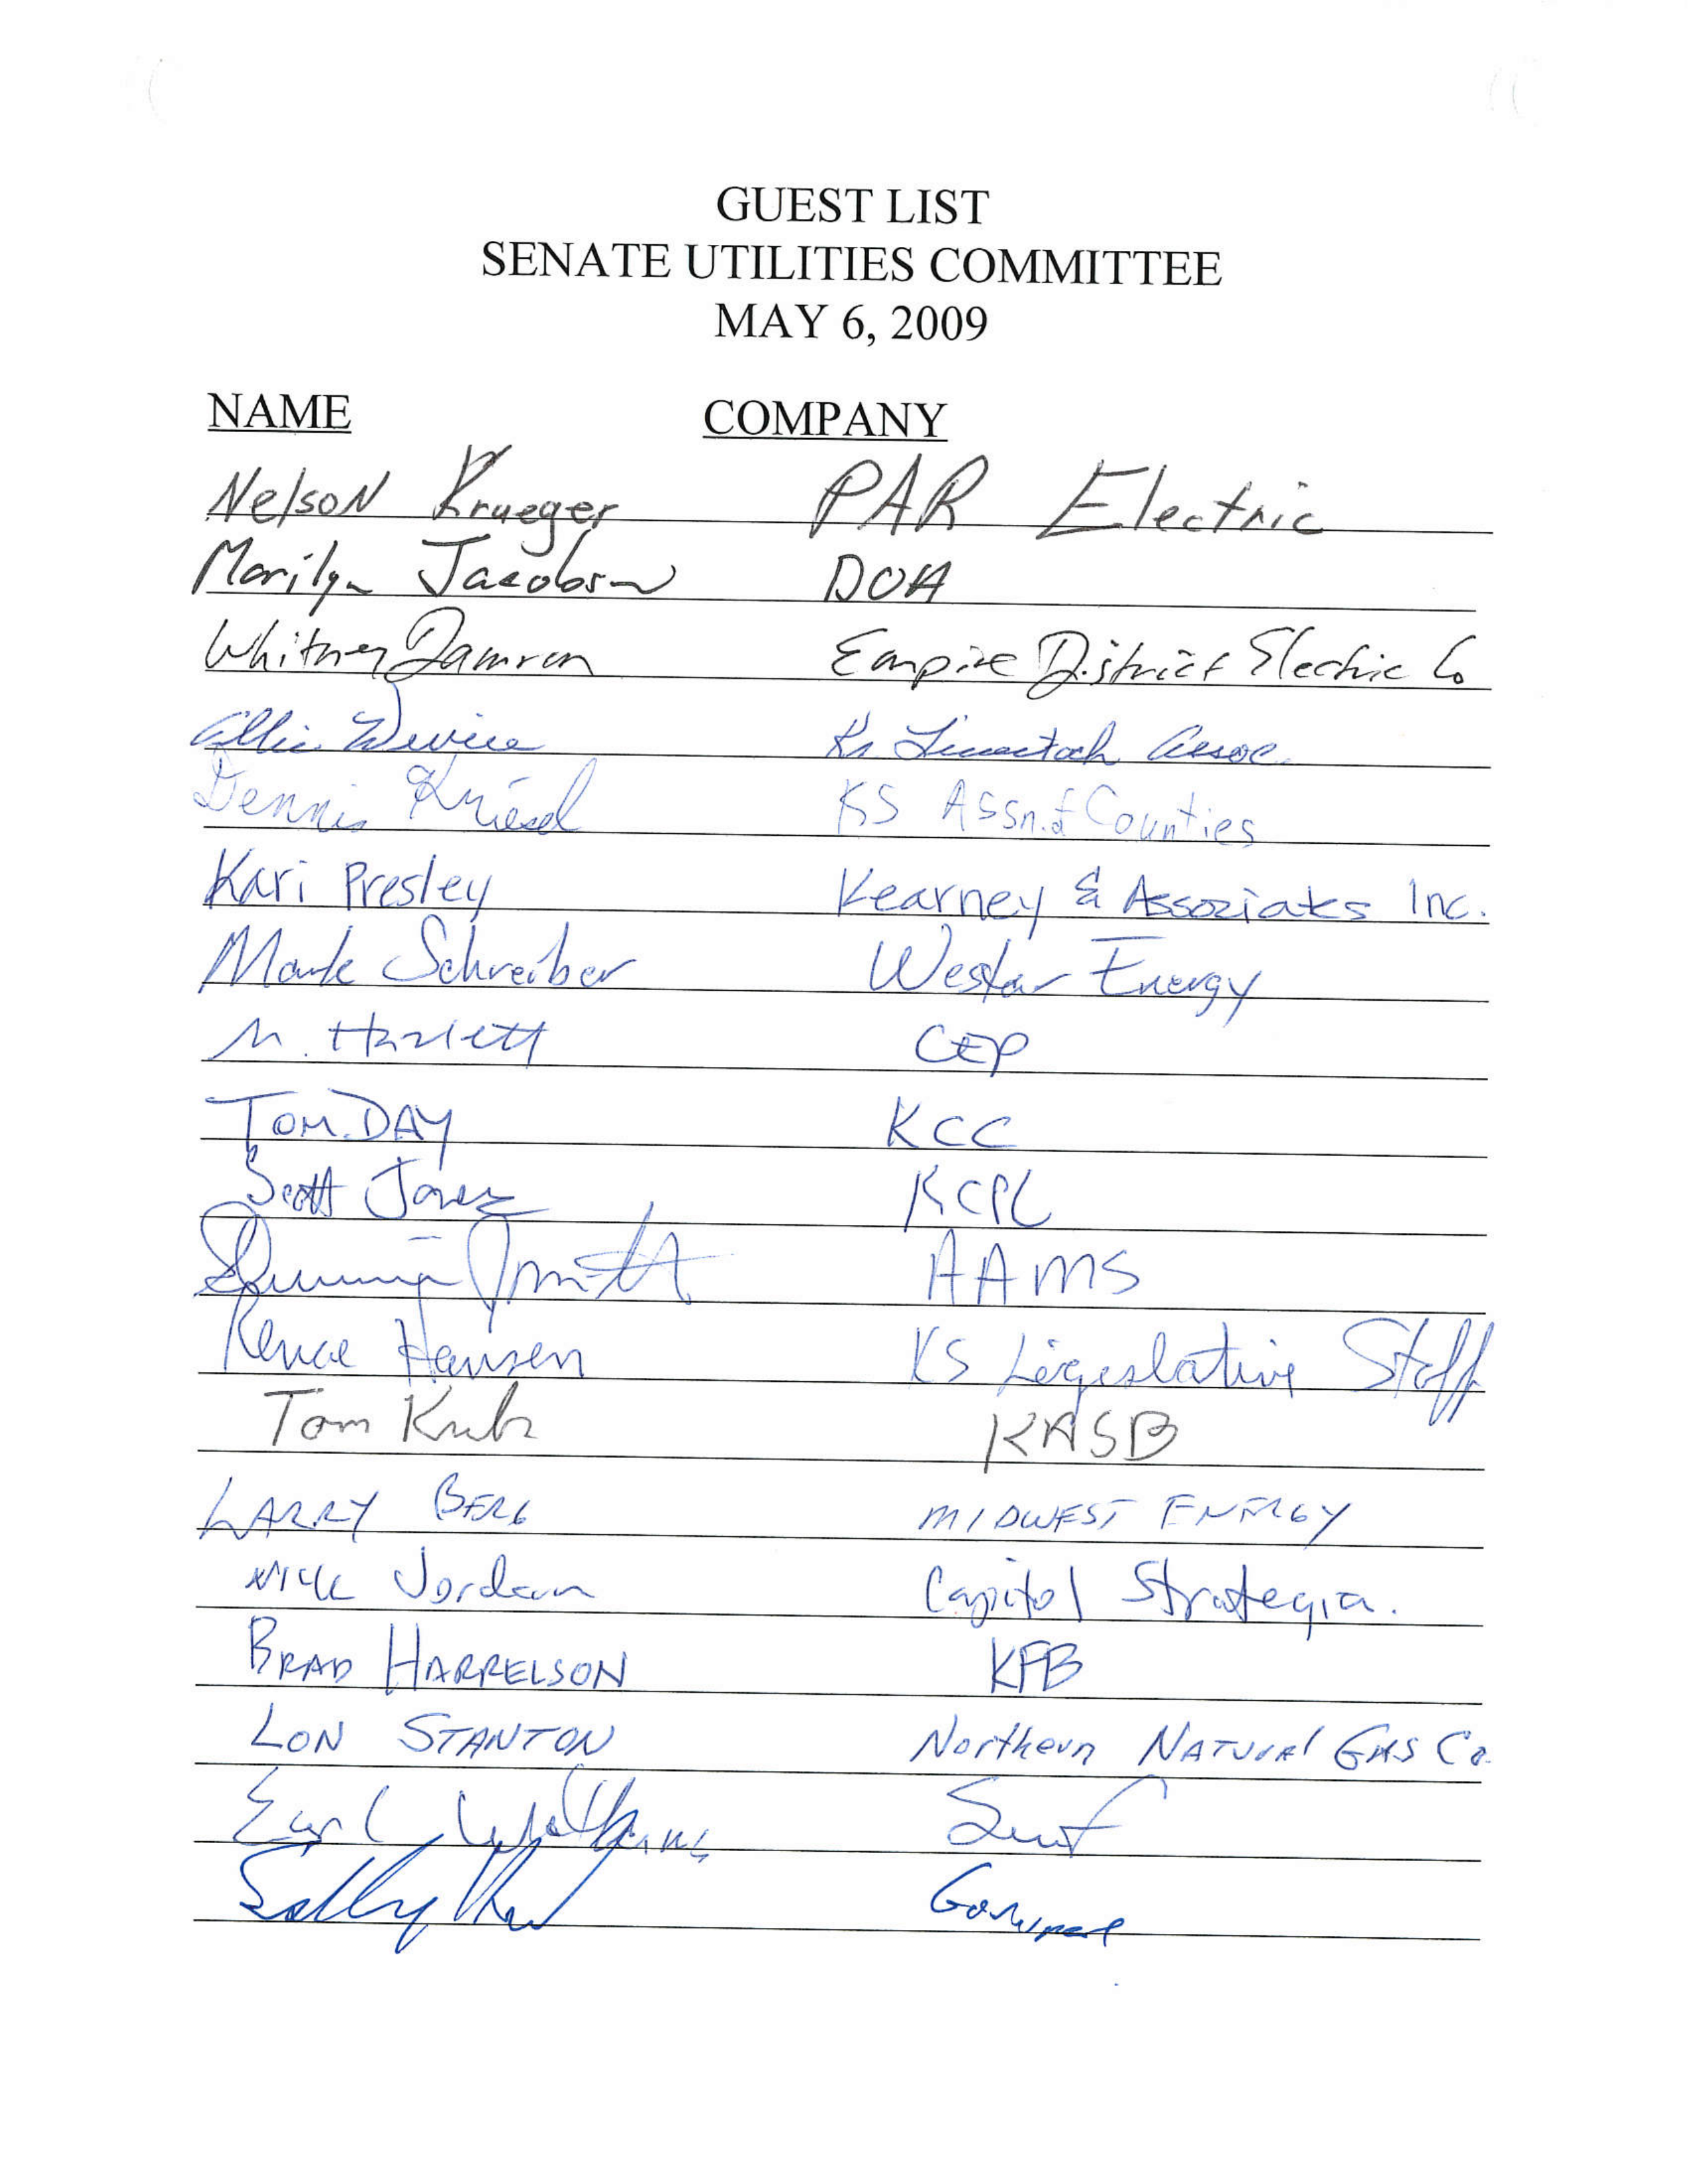 GUEST LIST
SENATE UTILITIES COMMITTEE
MAY 6, 2009
NAME COMPANY
Nelson Krueger PAR Electric
Marilyn Jacobson DOA
Whitney Damron Empire District Electric Co
Allie Devine Ks Livestock Assoc.
Dennis Kriesel KS Assn. of Counties
Kari Presley Kearney & Associates Inc.
Mark Schreiber Westar Energy
M. Hazlett CEP
TOM DAY KCC
Scott Jones KCPL
AAMS
Renae Hansen KS Legislative Staff
Tom Krebs KASB
LARRY BERG MIDWEST ENERGY
Nick Jordan Capitol
BRAD HARRELSON KFB
LON STANTON Northern NATURAL GAS Co.
Earl Watkins
Sally